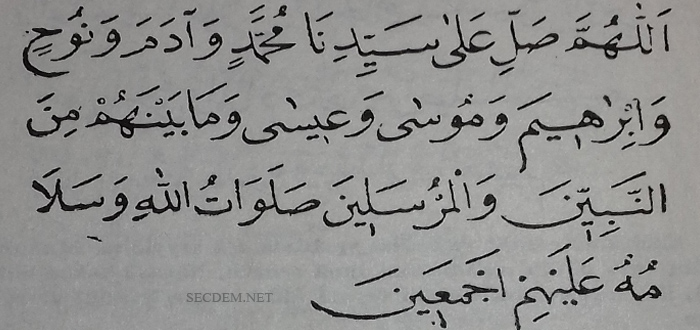 اَللّٰهُمَّ صَلِّ عَلٰى سَيِّدِنَا مُحَمَّدٍ وَآدَمَ وَنُوحٍ
وَاِبْرٰهِيمَ وَمُوسٰى وَعِيسٰى وَمَا بَيْنَهُمْ مِنَ
النَّبِيِّنَ وَالْمُرْسَلِينَ صَلَوَاتُ اللّٰهِ وَسَلَا
مُهُ عَلَيْهِمْ اَجْمَعِينَ
SECDEM.NET